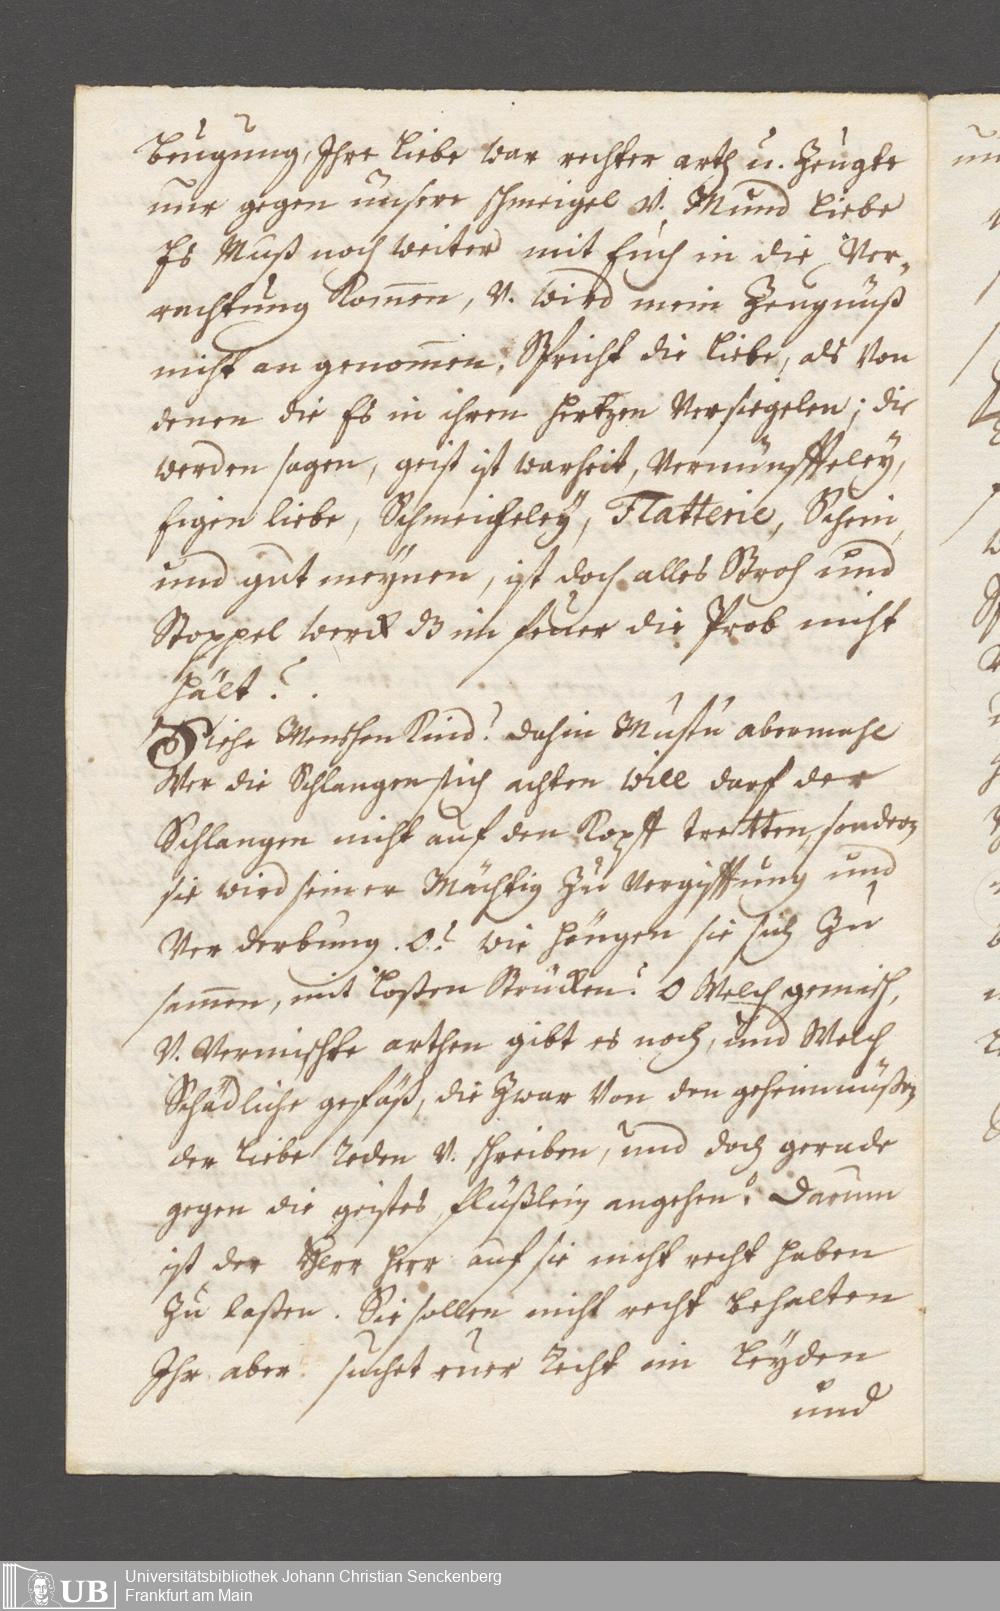 beugung, Ihre liebe war rechter arth u. Zeugte
nur gegen unsere schmeigel v. Mund liebe
Es Muß noch weiter mit Euch in die Ver„
rachtung Kom̄en, v. wird mein Zeugnüß
nicht an genom̄en, Spricht die liebe, als Von
denen die Es in ihren Hertzen Versiegelen; die
werden sagen, geist ist warheit, Vernünffteleÿ,
Eigen liebe, Schmeicheleÿ, Flatterie, Schein,
und gut meÿnen, ist doch alles Stroh und
Stoppel werck dß im feuer die Prob nicht
hält?.
Siehe Menschen Kind! dahin Mustu abermahl
Wer die Schlangen stich achten will darf der
Schlangen nicht auf den Kopff tretten, sondern
sie wird seiner Mächtig Zu Vergifftung und
Ver derbung. O! wie hängen sie sich Zu
sam̄en, mit Loßen Stricken! O Welch gemisch,
v. Vermischte arthen gibt es noch, und Welch
Schädliche gefäß, die Zwar Von den geheimnüßen
der liebe Reden v. schreiben, und doch gerade
gegen die geistes flüßlein angehen! Darum
ist der Herr Herr auf sie nicht recht haben
Zu laßen. Sie sollen nicht recht behalten
Ihr aber suchet euer Recht im Leÿden
und
Universitätsbibliothek Johann Christian Senckenberg
Frankfurt am Main
UB